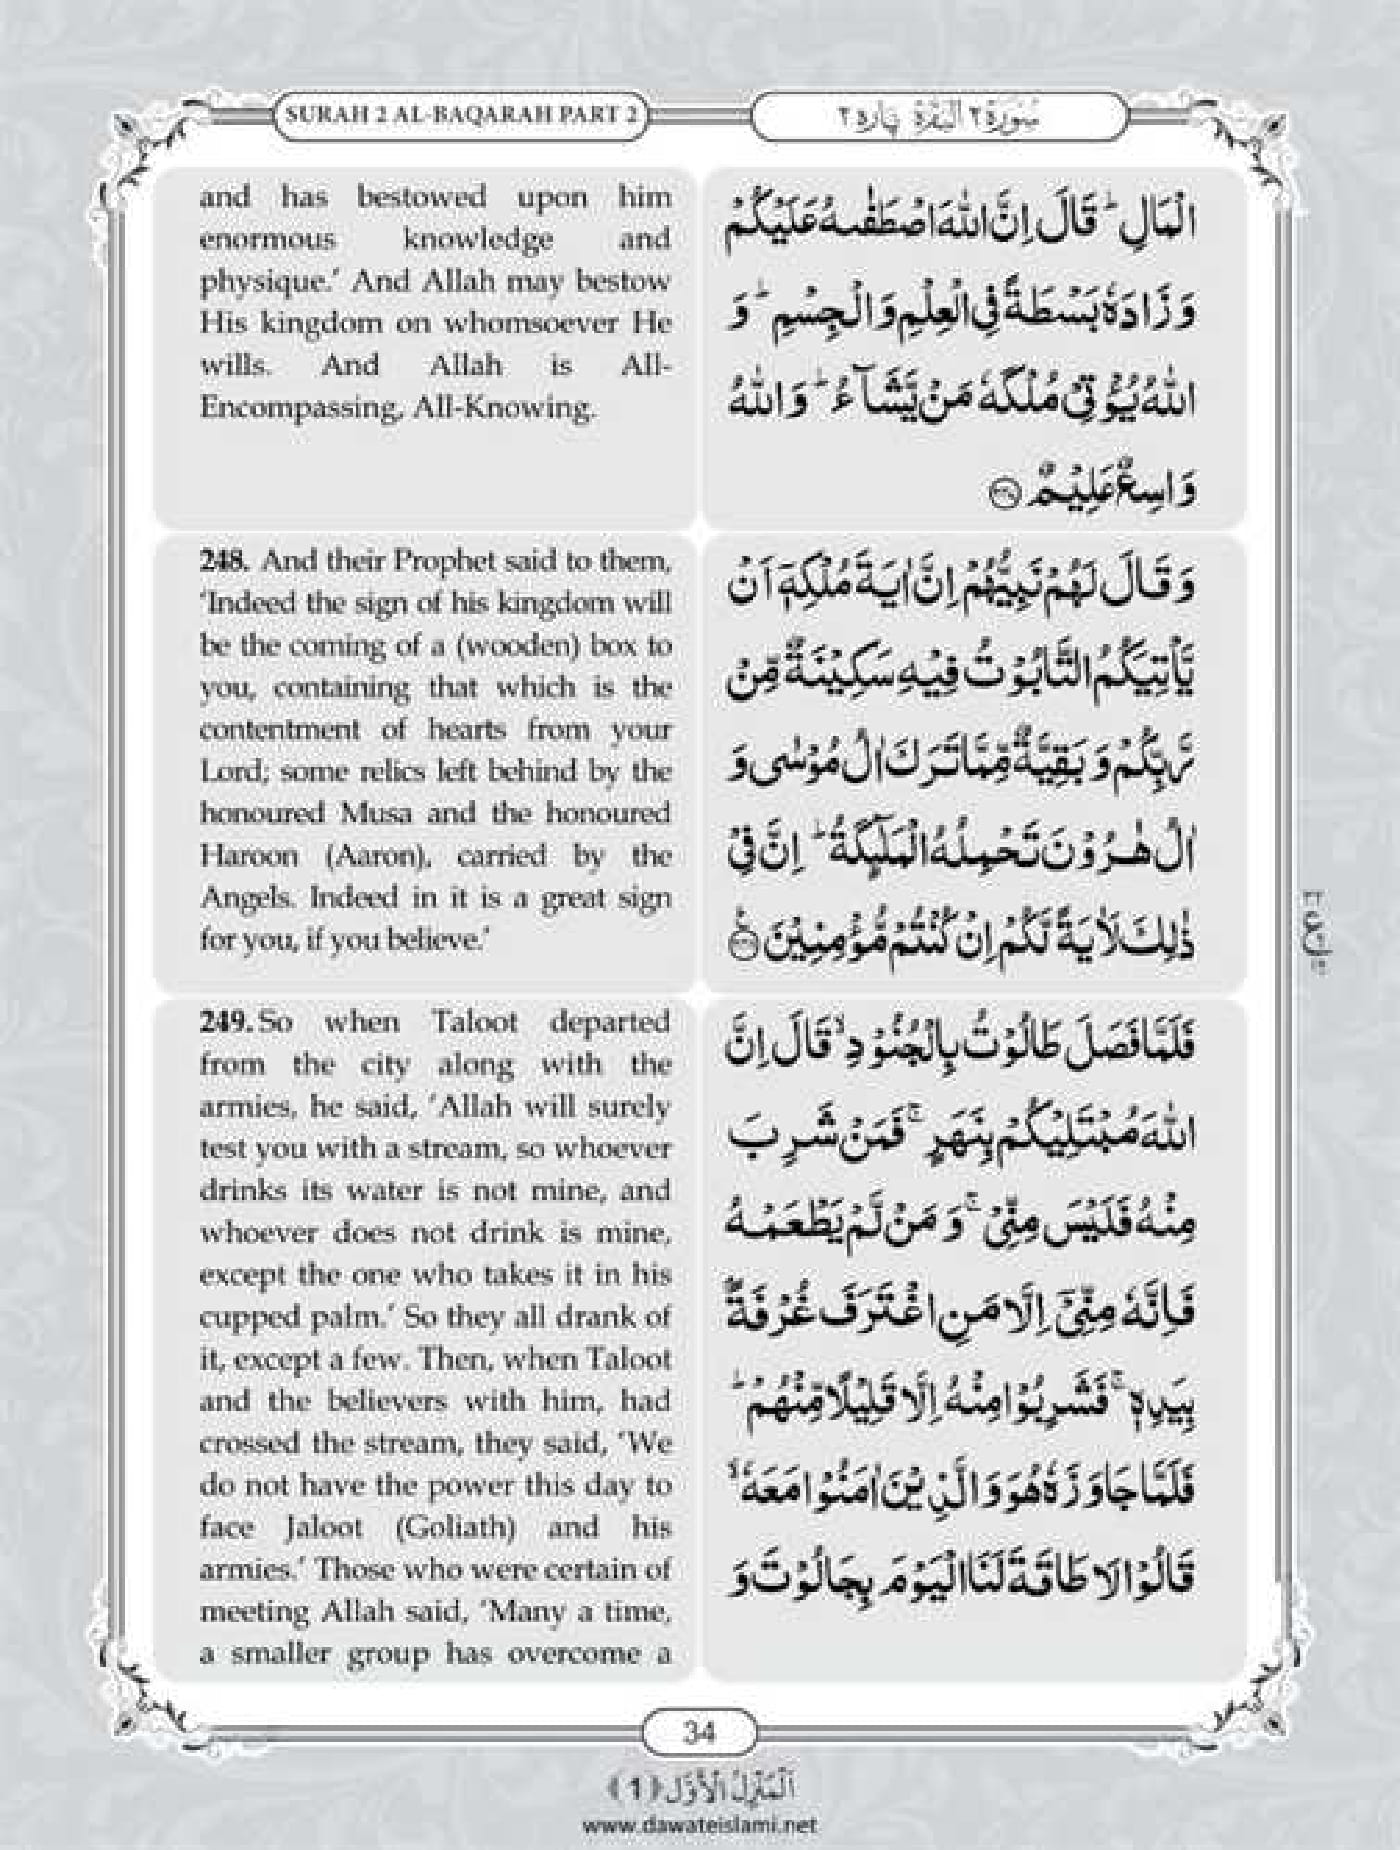 SURAH 2 AL-BAQARAH PART 2
سُوْرَة ٢ اَلْبَقَرَة پاره ٢
and has bestowed upon him
enormous knowledge and
physique.’ And Allah may bestow
His kingdom on whomsoever He
wills. And Allah is All-
Encompassing, All-Knowing.
الْمَالِ ؕ قَالَ اِنَّ اللّٰهَ اصْطَفٰىهُ عَلَیْكُمْ
وَ زَادَهٗ بَسْطَةً فِی الْعِلْمِ وَ الْجِسْمِ ؕ وَ
اللّٰهُ یُؤْتِیْ مُلْكَهٗ مَنْ یَّشَآءُ ؕ وَ اللّٰهُ
وَاسِعٌ عَلِیْمٌ
248. And their Prophet said to them,
‘Indeed the sign of his kingdom will
be the coming of a (wooden) box to
you, containing that which is the
contentment of hearts from your
Lord; some relics left behind by the
honoured Musa and the honoured
Haroon (Aaron), carried by the
Angels. Indeed in it is a great sign
for you, if you believe.’
وَ قَالَ لَهُمْ نَبِیُّهُمْ اِنَّ اٰیَةَ مُلْكِهٖۤ اَنْ
یَّاْتِیَكُمُ التَّابُوْتُ فِیْهِ سَكِیْنَةٌ مِّنْ
رَّبِّكُمْ وَ بَقِیَّةٌ مِّمَّا تَرَكَ اٰلُ مُوْسٰى وَ
اٰلُ هٰرُوْنَ تَحْمِلُهُ الْمَلٰٓىِٕكَةُ ؕ اِنَّ فِیْ
ذٰلِكَ لَاٰیَةً لَّكُمْ اِنْ كُنْتُمْ مُّؤْمِنِیْنَ
249. So when Taloot departed
from the city along with the
armies, he said, ‘Allah will surely
test you with a stream, so whoever
drinks its water is not mine, and
whoever does not drink is mine,
except the one who takes it in his
cupped palm.’ So they all drank of
it, except a few. Then, when Taloot
and the believers with him, had
crossed the stream, they said, ‘We
do not have the power this day to
face Jaloot (Goliath) and his
armies.’ Those who were certain of
meeting Allah said, ‘Many a time,
a smaller group has overcome a
فَلَمَّا فَصَلَ طَالُوْتُ بِالْجُنُوْدِ ۙ قَالَ اِنَّ
اللّٰهَ مُبْتَلِیْكُمْ بِنَهَرٍ ۚ فَمَنْ شَرِبَ
مِنْهُ فَلَیْسَ مِنِّیْ ۚ وَ مَنْ لَّمْ یَطْعَمْهُ
فَاِنَّهٗ مِنِّیْۤ اِلَّا مَنِ اغْتَرَفَ غُرْفَةًۢ
بِیَدِهٖ ۚ فَشَرِبُوْا مِنْهُ اِلَّا قَلِیْلًا مِّنْهُمْ ؕ
فَلَمَّا جَاوَزَهٗ هُوَ وَ الَّذِیْنَ اٰمَنُوْا مَعَهٗ ۙ
قَالُوْا لَا طَاقَةَ لَنَا الْیَوْمَ بِجَالُوْتَ وَ
34
اَلْمَنْزِلُ الْاَوَّل ﴿1﴾
www.dawateislami.net